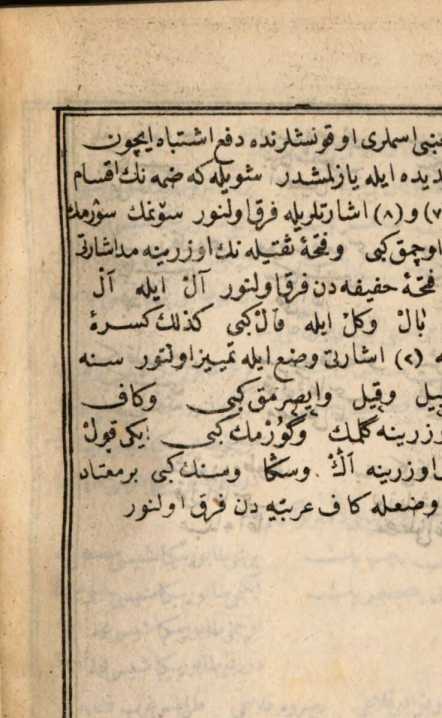 اسملری اوقونشلرنده دفع اشتباه ایچون
دیده ایله یازلمشدر شویله که ضمه نك اقسام
(۷) و (۸) اشارتلریله فرق اولنور سوٓنمك سوٓرمك
اوچمق کبی و فتحهٔ ثقتیله نك اوزرینه مد اشارتی
فتحهٔ خفیفه دن فرق اولنور آل ایله آل
بال وکل ایله کبی کذلك کسرهٔ
(۲) اشارتی وضع ایله تمییز اولنور سنه
بیل وقیل وایصرمق کبی وکاف
وزرینه گلمك وگوزمك کبی ایکی قبول
اوزرینه وسکا ومنك کبی بر معتاد
وضعله کاف عربیه دن فرق اولنور